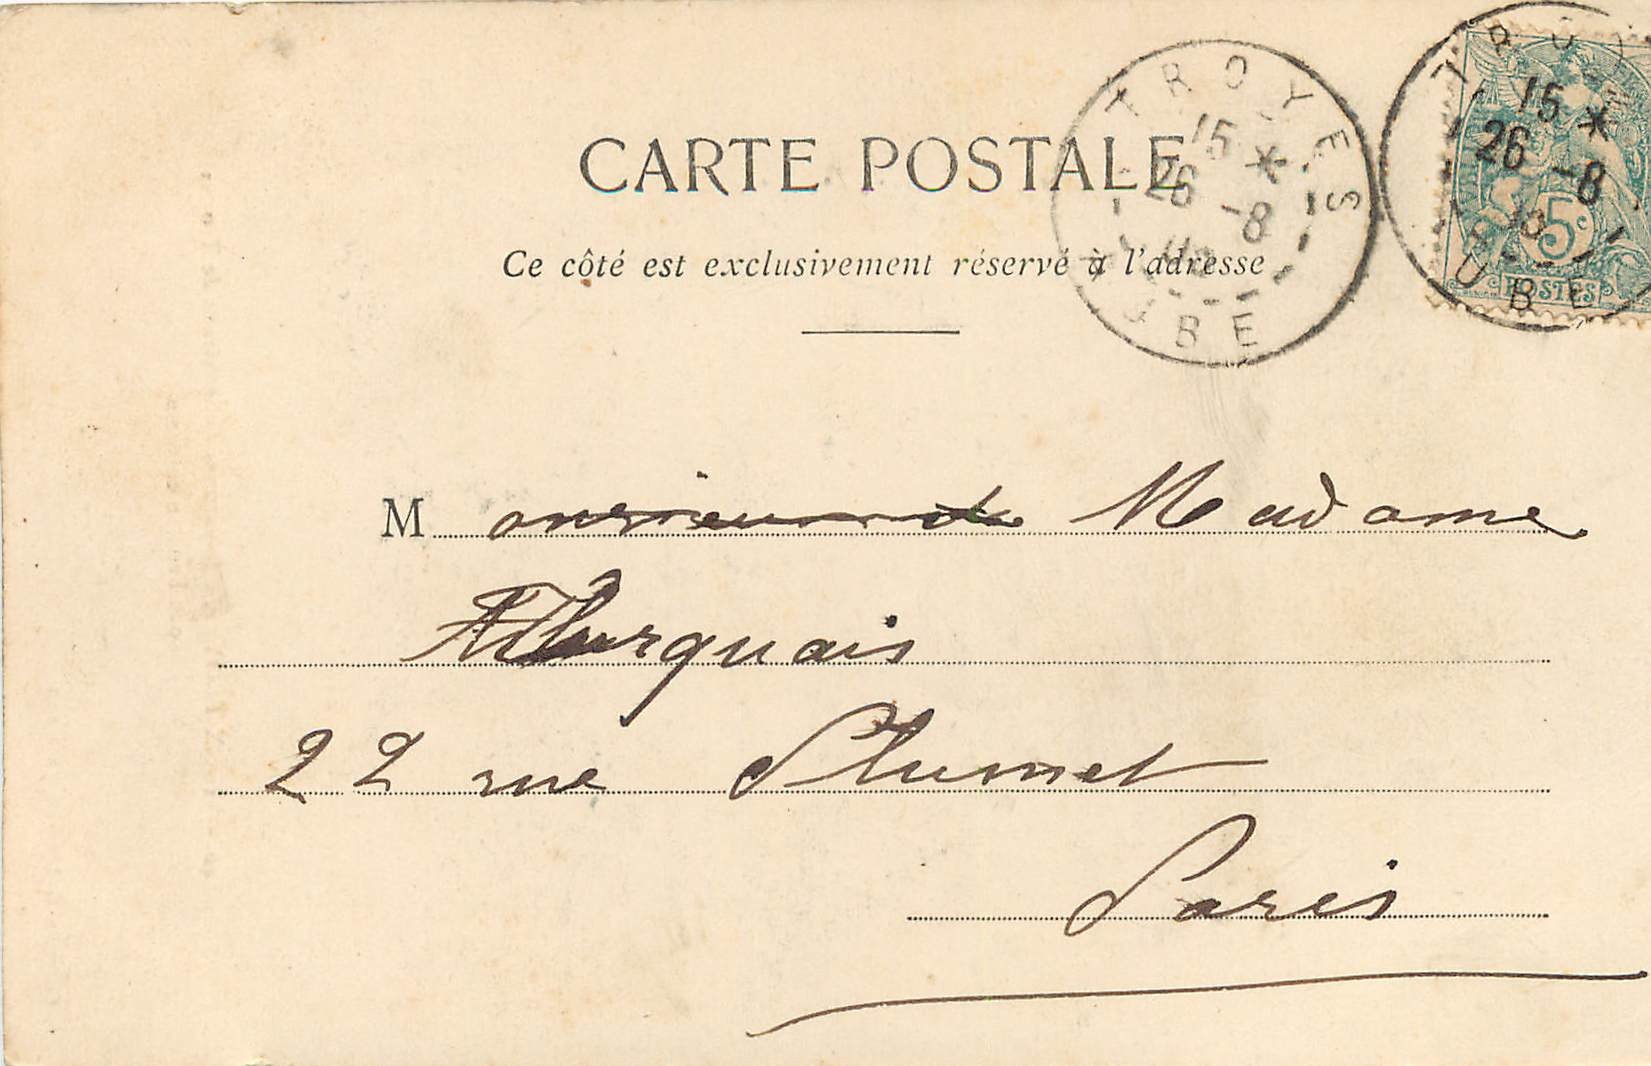 CARTE POSTALE
Ce côté est exclusivement réservé à l'adresse
TROYES
15 *
26 -8
AUBE
15 *
26 -8
5c
POSTES
UBE
M onsieur et Madame
22 rue Plumet
Paris